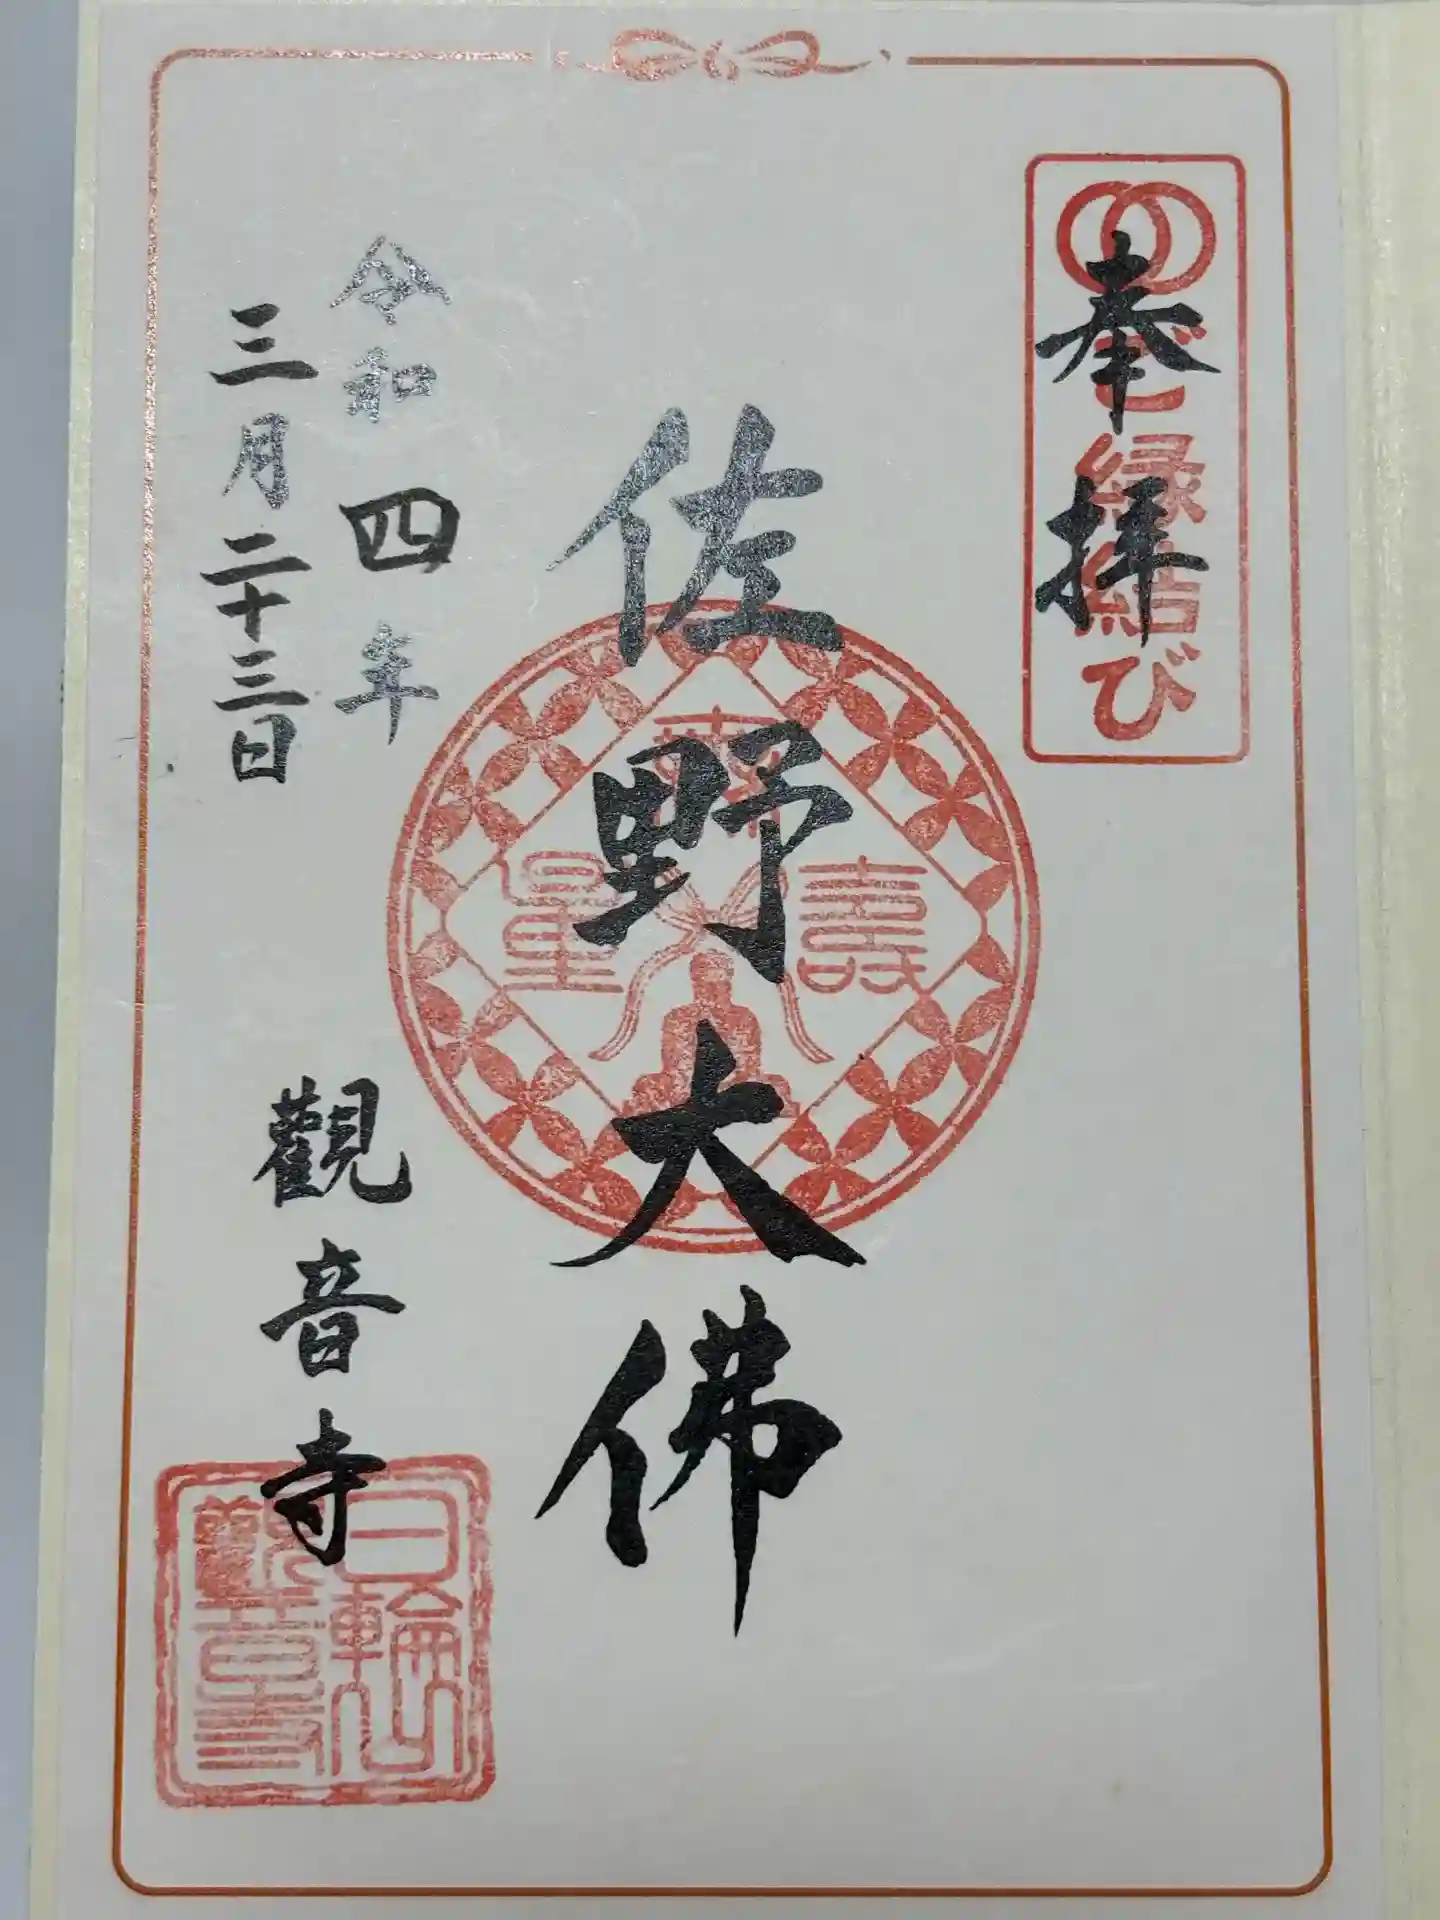 奉拝
ご縁結び
佐野大佛
無
壽
量
令和四年
三月二十三日
觀音寺
日輪
觀音寺